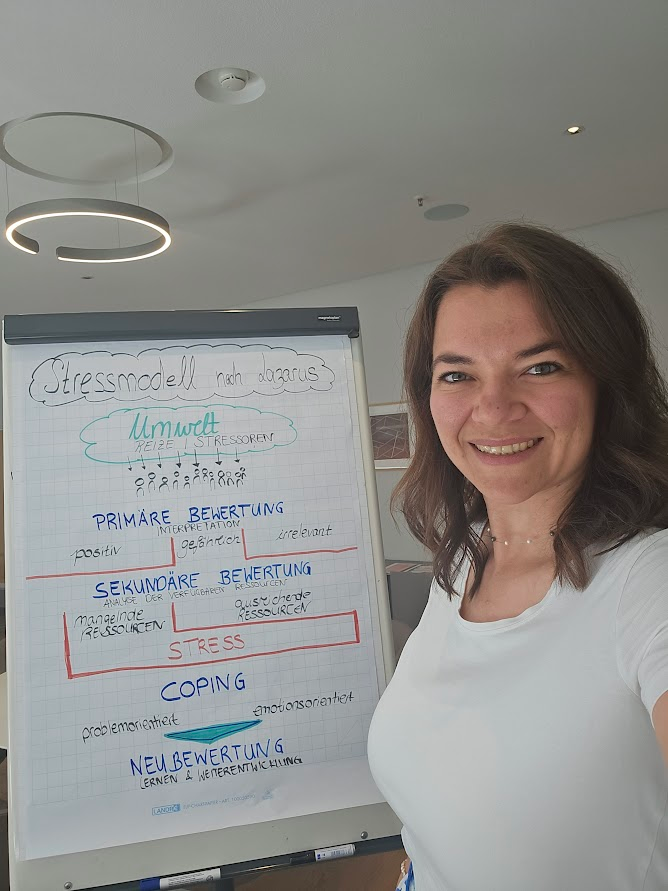 Stressmodell nach Lazarus
Umwelt
REIZE / STRESSOREN
PRIMÄRE BEWERTUNG
INTERPRETATION
positiv gefährlich irrelevant
SEKUNDÄRE BEWERTUNG
ANALYSE DER VERFÜGBAREN RESSOURCEN
mangelnde ausreichende
RESSOURCEN RESSOURCEN
STRESS
COPING
problemorientiert emotionsorientiert
NEUBEWERTUNG
LERNEN & WEITERENTWICKLUNG